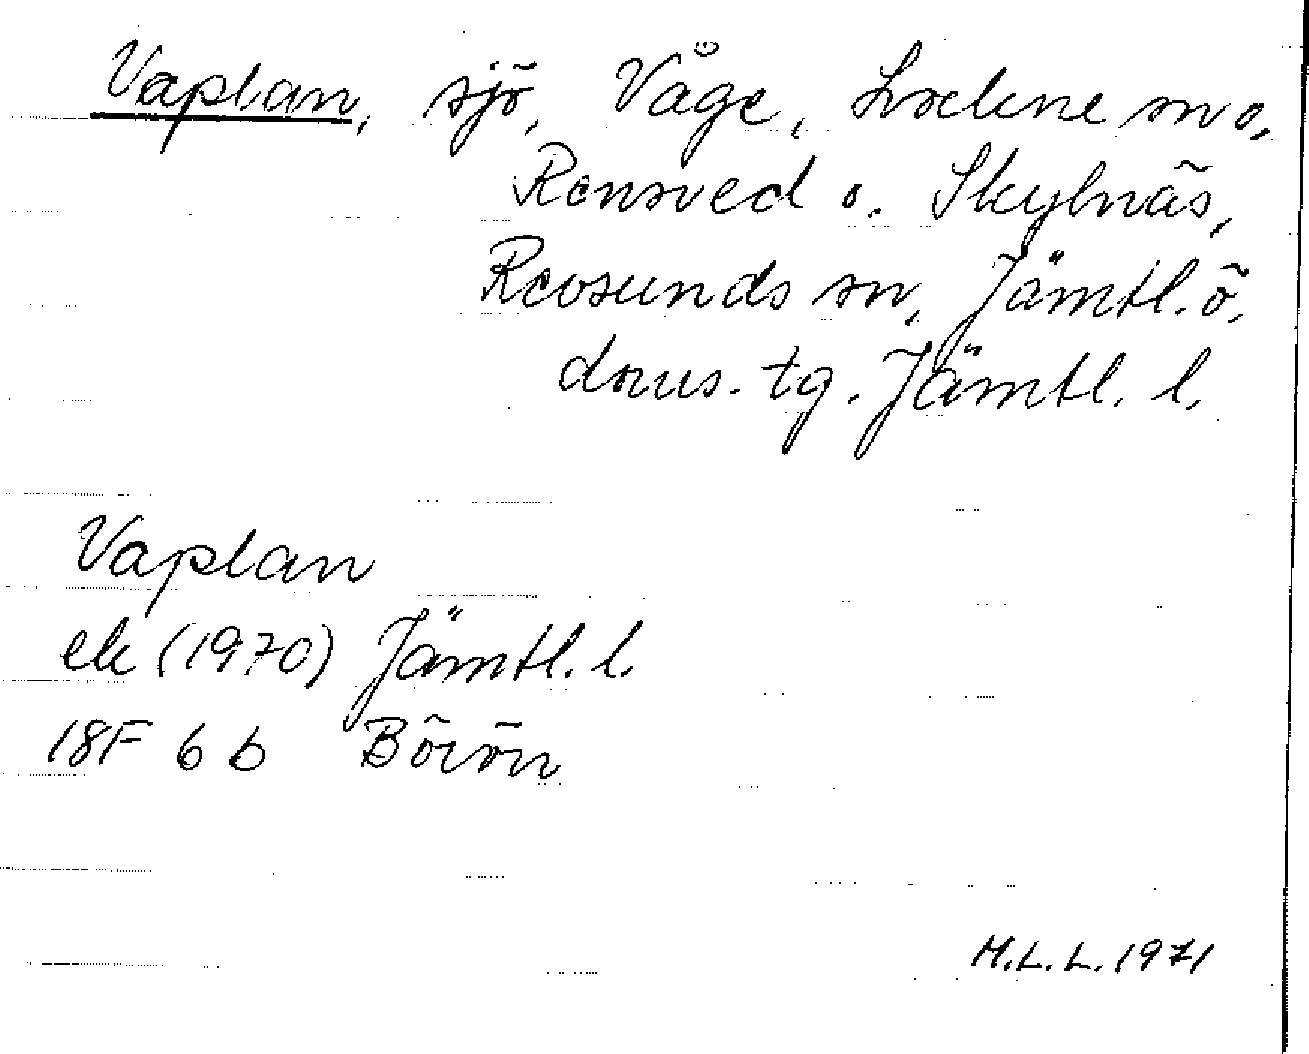 Vaplan, sjö, Våge, Lockne sn o.
Rensved o. Skylnäs,
Revsunds sn, Jämtl. ö.
doms. tg. Jämtl. l.
Vaplan
ek (1970) Jämtl. l.
18F 6 b Börön
M.L.L. 1971